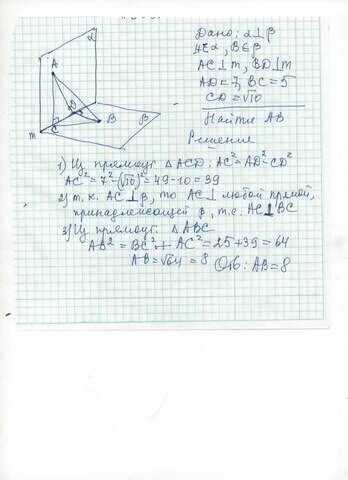 Дано: α⊥β
A∈α, B∈β
AC⊥m, BD⊥m
AD=7, BC=5
CD=√10
Найти AB
Решение
α
A
D
B
β
m
C
1) Из прямоуг. △ACD: AC²=AD²-CD²
AC²=7²-(√10)²=49-10=39
2) т.к. AC⊥β, то AC⊥ любой прямой,
принадлежащей β, т.е. AC⊥BC
3) Из прямоуг. △ABC
AB²=BC²+AC²=25+39=64
AB=√64=8 Отв: AB=8